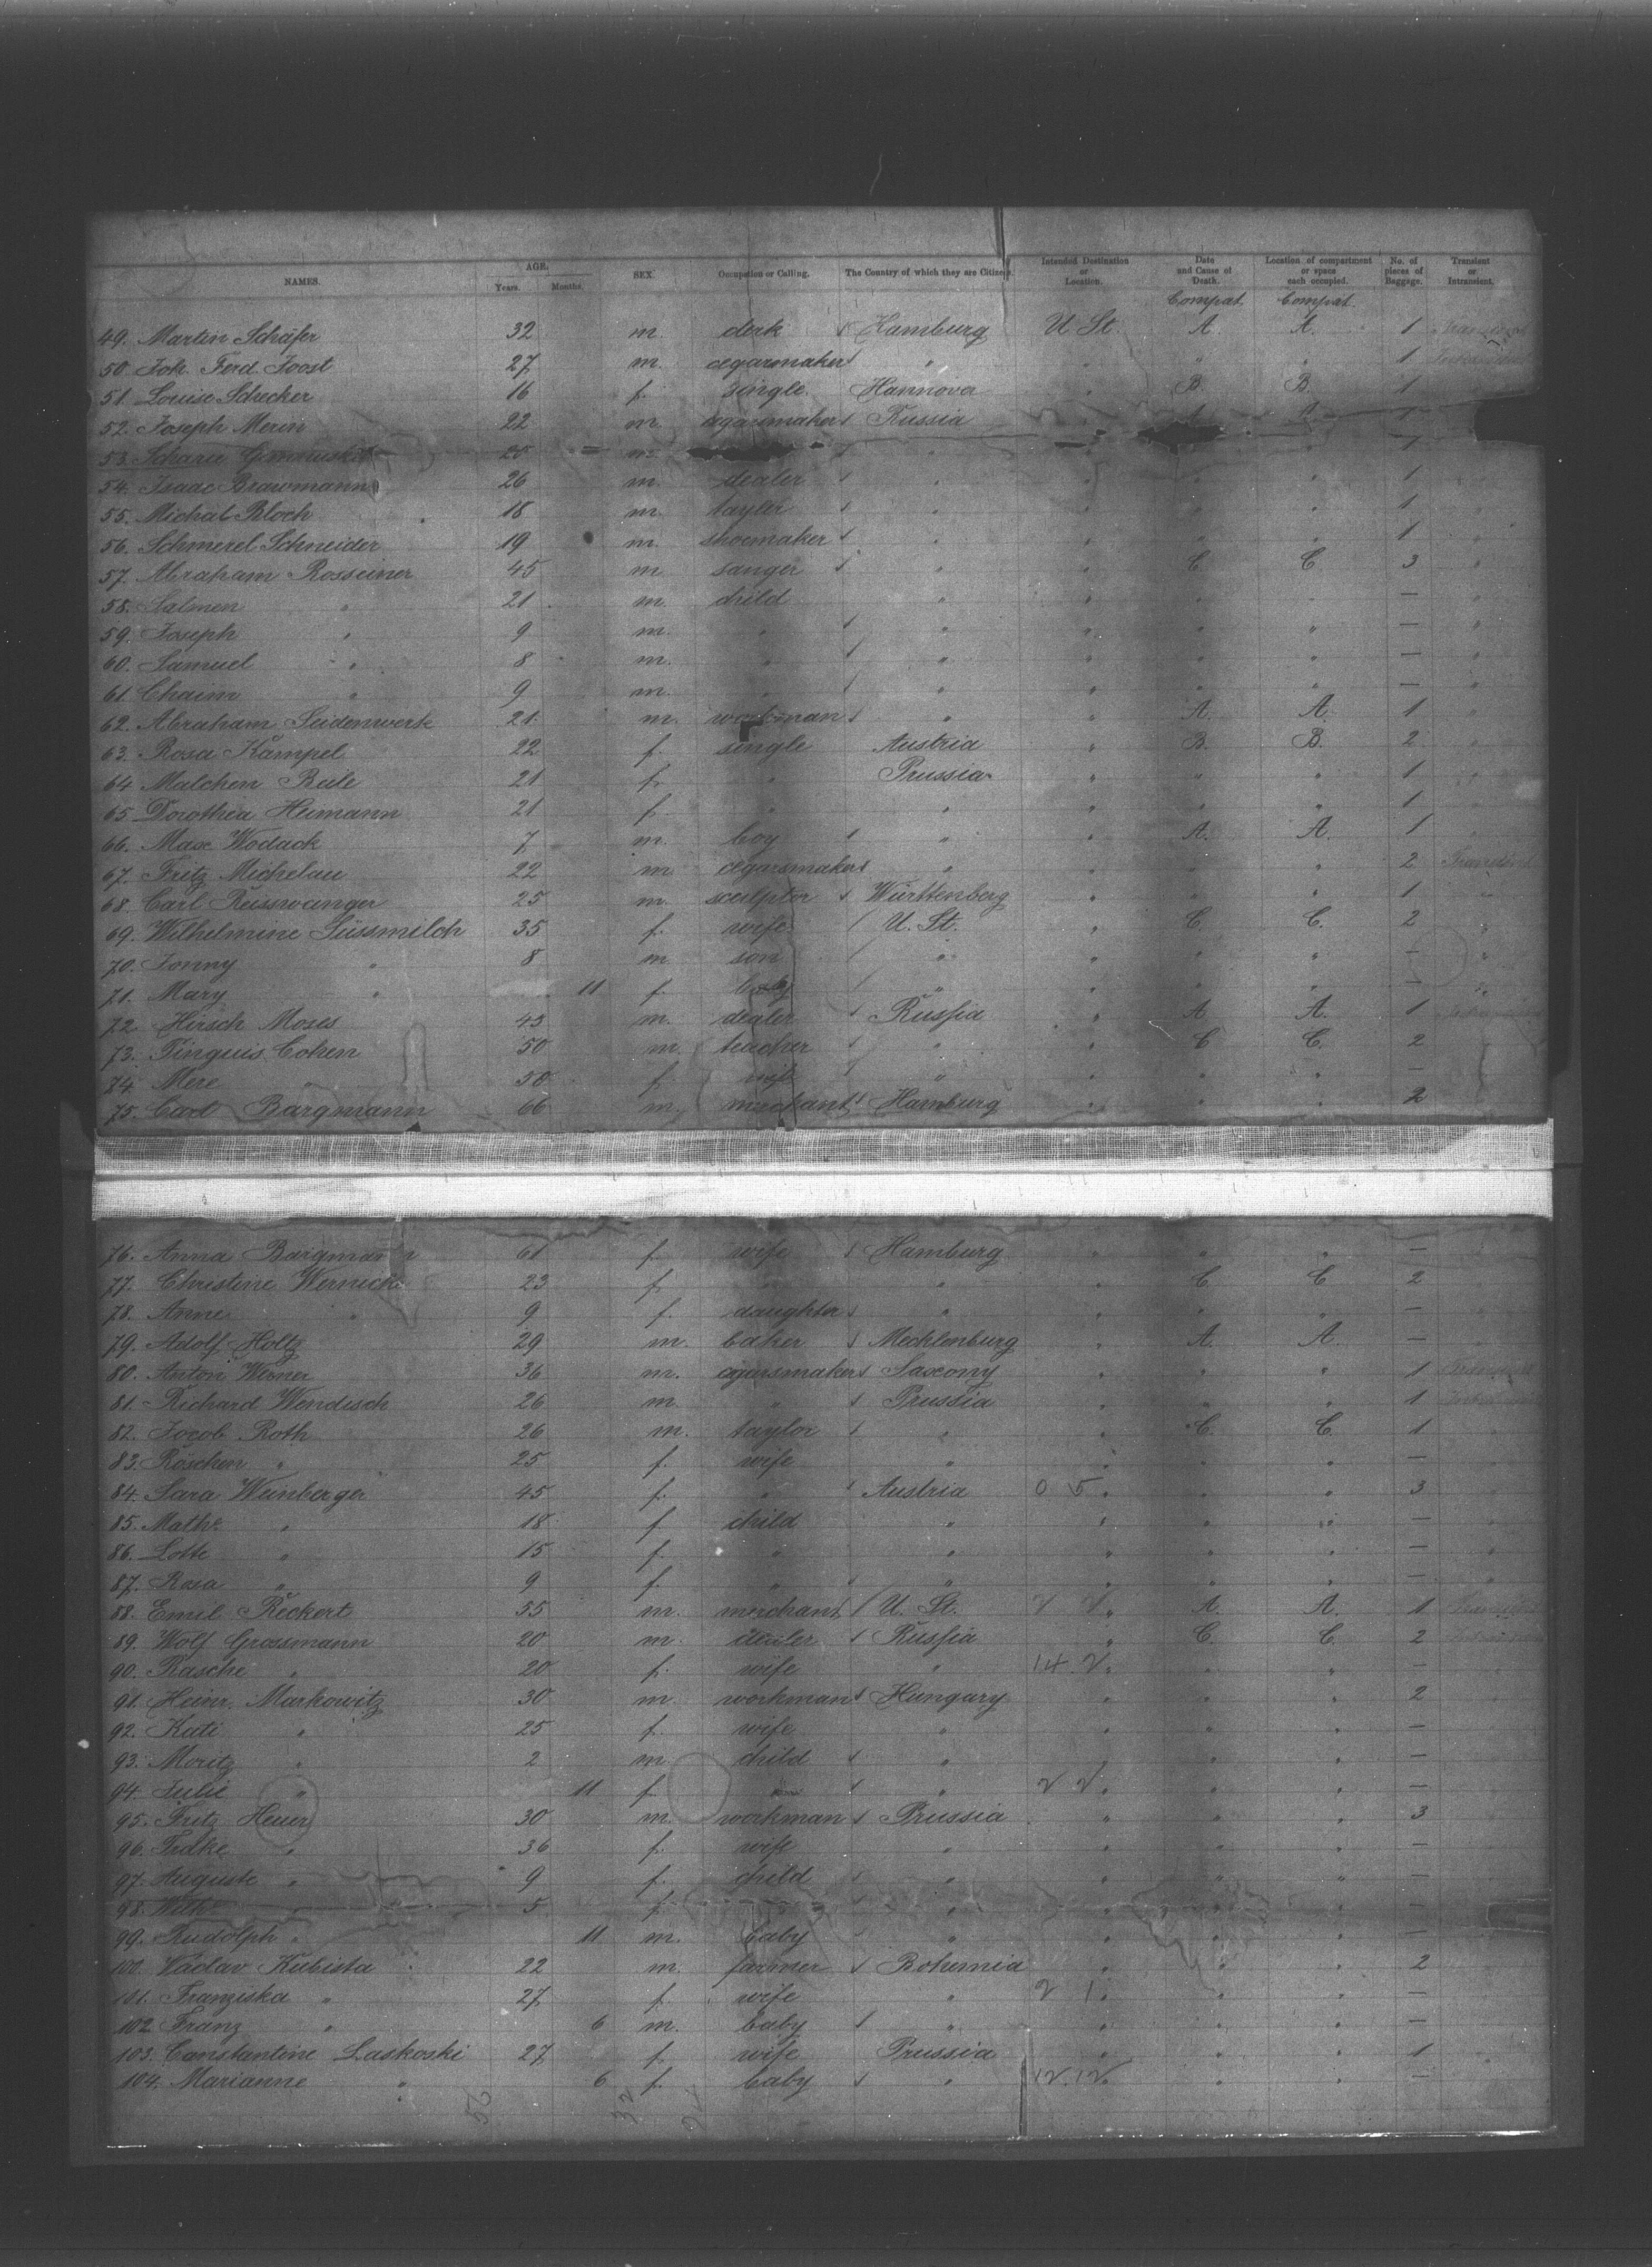 NAMES. AGE. Years. Months. SEX. Occupation or Calling. The Country of which they are Citizens. Intended Destination or Location. Date and Cause of Death. Location of compartment or space each occupied. No. of pieces of Baggage. Transient or Intransient.
Compat. Compat.
49. Martin Schäfer 32 m. clerk Hamburg U St. A. A. 1
50. Joh. Ferd. Joost 27 m. cegarmaker " " " " 1
51. Louise Schecker 16 f. single. Hannover " B. B. 1
52. Joseph Merin 22 m. cegarmaker Russia A. A. 1
53. 25 m. " 1
54. Isaac Brawmann 26 m. dealer " " " " 1
55. Michal Bloch 18 m. tayler " " " " 1
56. Schmerel Schneider 19 m. shoemaker " " " " 1
57. Abraham Rosseiner 45 m sanger " " C. C 3 "
58. Salmen " 21 m. child " " " " — "
59. Joseph " 9 m. " " " " " — "
60. Samuel " 8 m. " " " " " — "
61. Chaim " 9 m. " " " " " — "
62. Abraham Seidenwerk 21 m. workman " " A. A. 1 "
63. Rosa Kämpel 22 f. single Austria " B. B. 2 "
64. Malchen Beile 21 f. " Prussia " " " 1 "
65. Dorothea Heimann 21 f. " " " " " 1
66. Max Wodack 7 m. boy " " A. A. 1
67. Fritz Michelau 22 m cegarsmaker " " " " 2 Transient
68. Carl Reisswanger 25 m. sculptor Württenberg " " " 1 "
69. Wilhelmine Süssmilch 35 f. wife U. St. " C. C. 2 "
70. Jonny " 8 m son " " " " — "
71. Mary " 11 f. baby " " " " — "
72. Hirsch Moses 43 m. dealer Russia " A A. 1
73. Pinguis Cohen 50 m. teacher " " C C. 2
74. Mere " 50 f. wife " " " " —
75. Carl Bargmann 66 m. merchant Hamburg " " " 2
76. Anna Bargmann 61 f. wife Hamburg " " " —
77. Christine Wernicke 23 f. " " " C. C 2
78. Anne " 9 f. daughter " " " " —
79. Adolf Holtz 29 m. baker Mecklenburg " A. A. —
80. Anton Werner 36 m. cigarsmaker Saxony " " " 1
81. Richard Wendisch 26 m. " Prussia " " " 1
82. Jocob Roth 26 m. taylor " " C. C. 1 "
83. Röschen " 25 f. wife " " " " —
84. Sara Weinberger 45 f. " Austria 0 5 " " " 3
85. Mathe " 18 f. child " " " " —
86. Lotte " 15 f. " " " " " — "
87. Rosa " 9 f. " " " " " — "
88. Emil Reckert 55 m. merchant U. St. " A. A. 1
89. Wolf Grossmann 20 m. dealer Russia " C. C. 2
90. Rasche " 20 f. wife " 14. 2 " " " —
91. Heinr. Markowitz 30 m. workman Hungary " " " 2
92. Kati " 25 f. wife " " " " —
93. Moritz " 2 m. child " " " " —
94. Julie " 11 f. " " 2 2 " " " —
95. Fritz Heuer 30 m. workman Prussia " " " 3
96. " 36 f. wife " " " " —
97. Auguste " 9 f. child " " " " —
98. " 5 f. " " " " —
99. Rudolph " 11 m. baby " " " " —
100. Vaclav Kubista 22 m. farmer Bohemia " " " 2
101. Franziska " 27 f. wife " 2 1 " " " —
102. Franz " 6 m. baby " " " " —
103. Constantine Laskoski 27 f. wife Prussia " " " 1
104. Marianne " 6 f. baby " 12. 12 " " " —